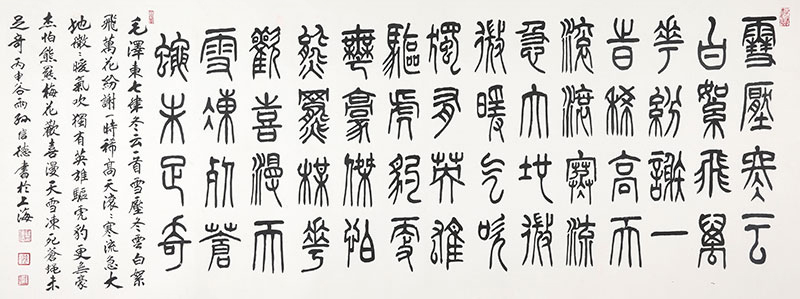 雪壓冬云
白絮飛萬
花紛謝一
時稀高天
滾滾寒流
急大地微
微暖气吹
獨有英雄
驅虎豹更
無豪傑怕
熊羆梅花
歡喜漫天
雪凍死蒼
蠅未足奇
毛澤東七律冬云一首雪壓冬雲白絮
飛萬花紛謝一時稀高天滾〻寒流急大
地微〻暖氣吹獨有英雄驅虎豹更無豪
杰怕熊羆梅花歡喜漫天雪凍死蒼蠅未
足奇 丙申谷雨孫信德書於上海